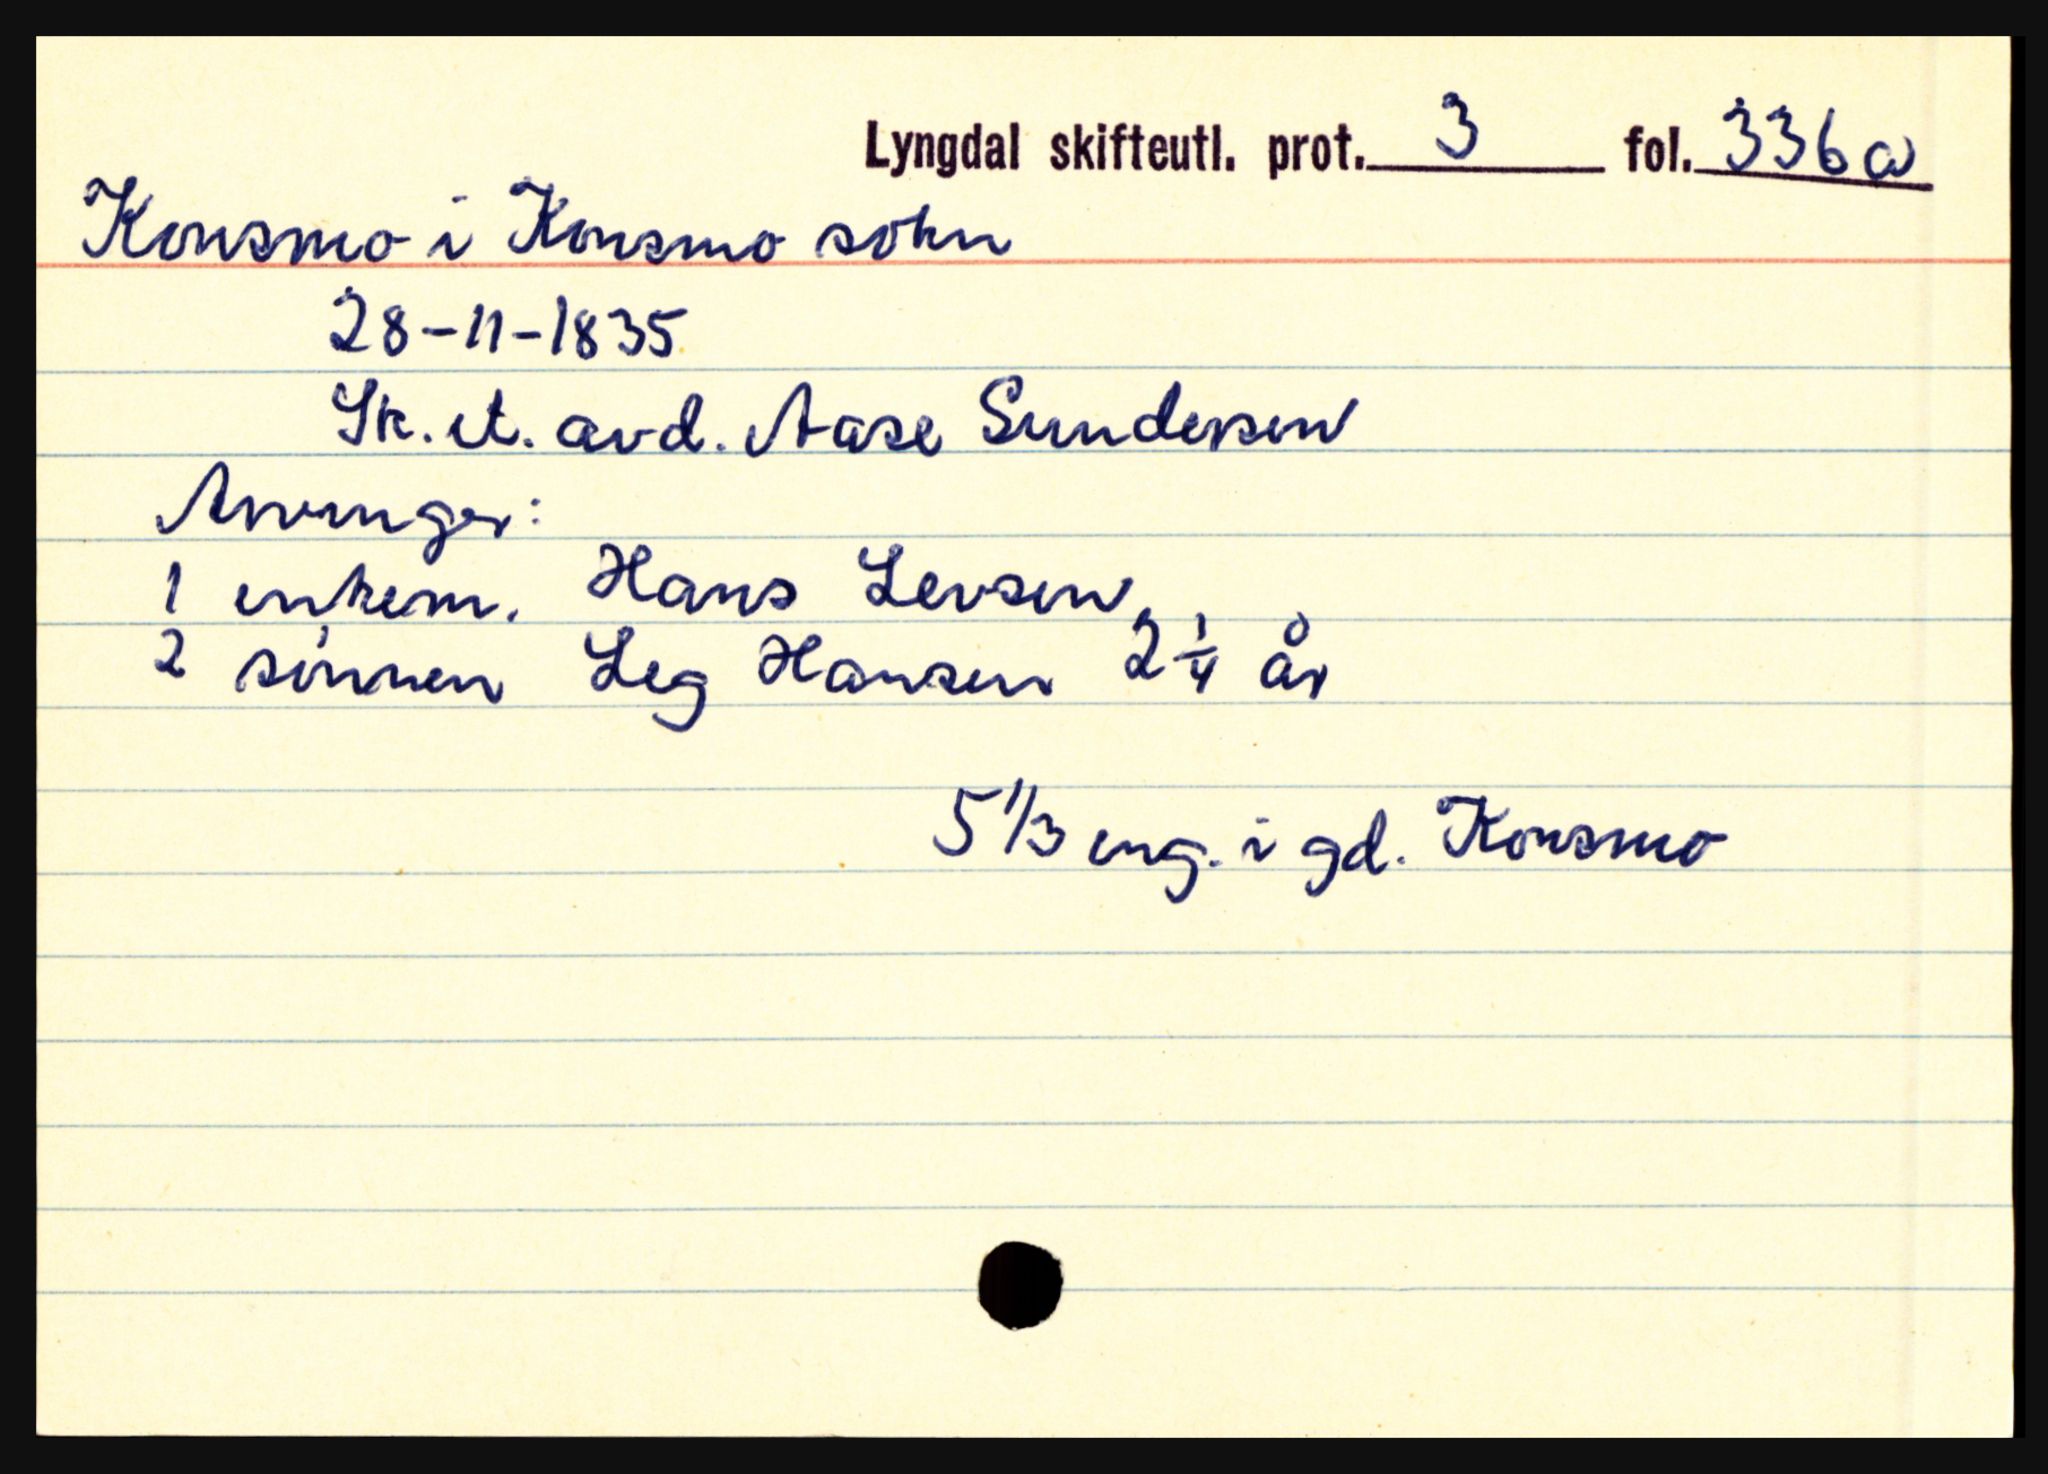 Lyngdal skifteutl. prot. 3 fol. 336a
Konsmo i Konsmo sokn
28-11-1835
Sk. et. avd. Aase Sundersen
Arvinger:
1 enkem. Hans Levsen
2 sønnen Leg Hansen 2 1/4 år
5 1/3 eng. i gd. Konsmo